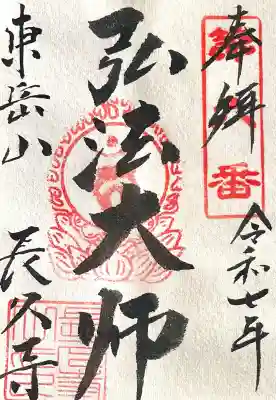 奉拝
令和七年
弘法大師
東岳山
長久寺